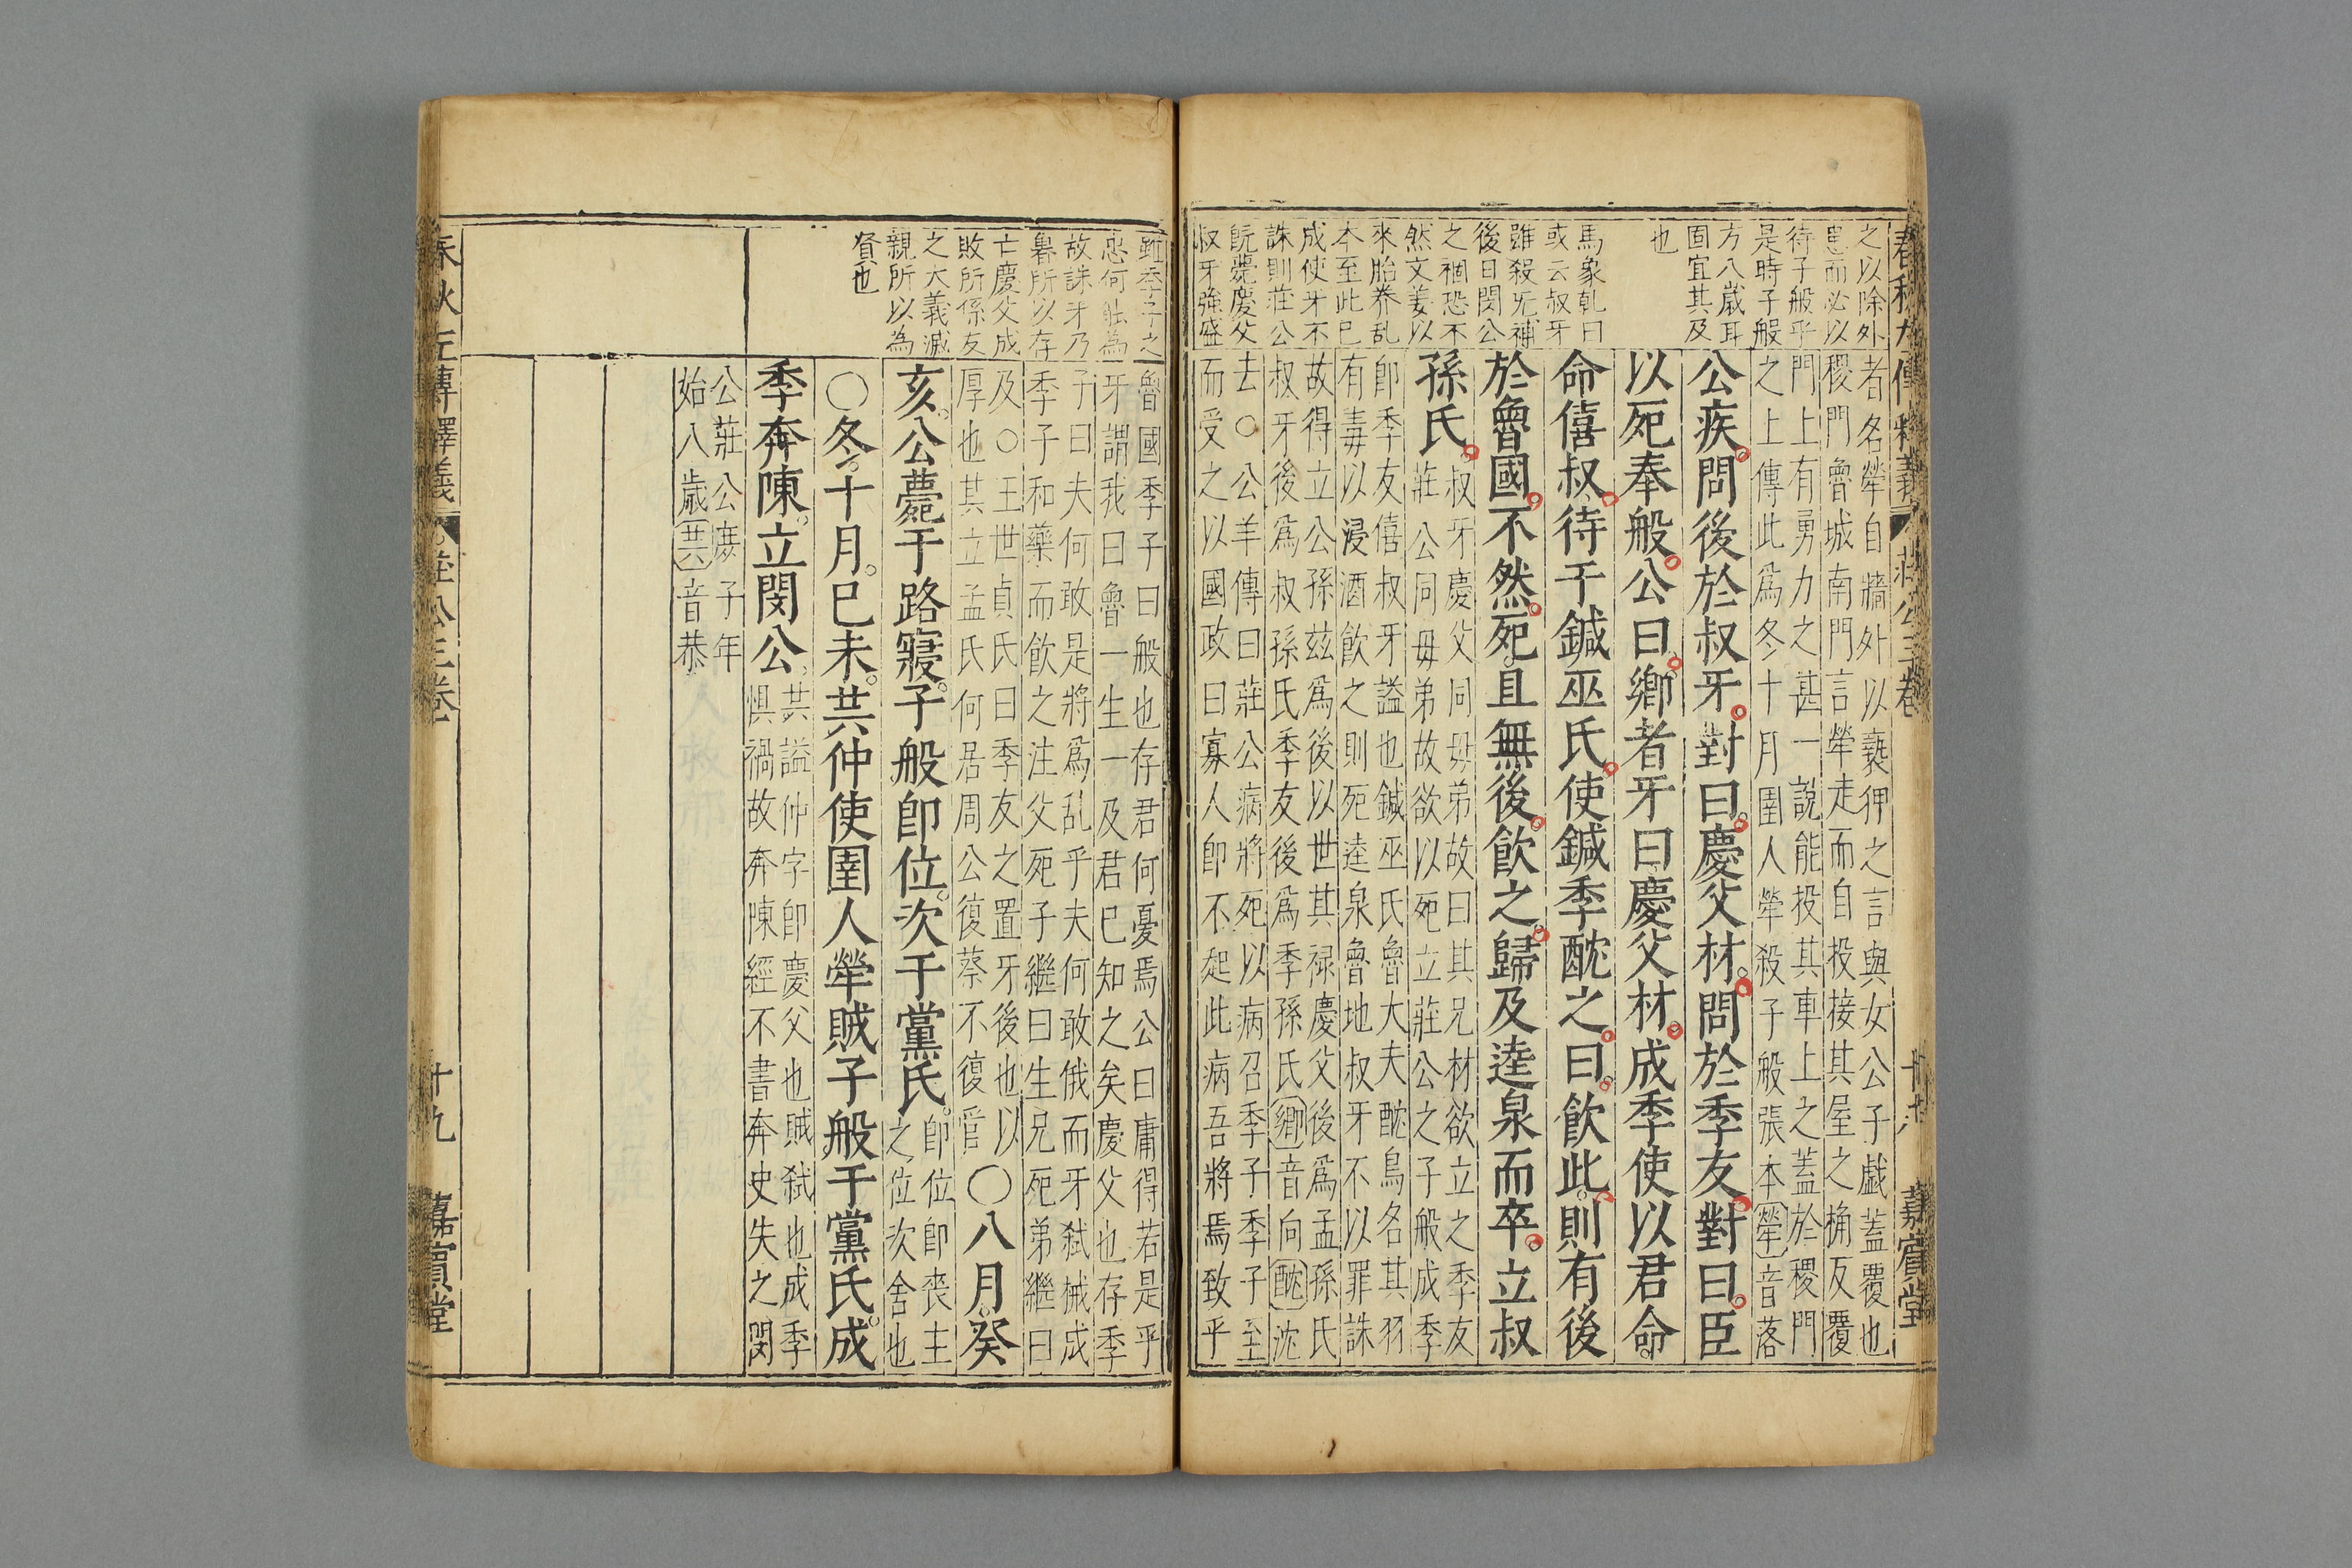 春秋左傳釋義
莊公三卷
十八
嘉賓堂
之以除外
患而必以
待子般乎
是時子般
方八歲耳
固宜其及
也
馬象乹曰
或云叔牙
雖殺旡補
後日閔公
之禍恐不
然文姜以
來胎养乱
本至此已
成使牙不
誅則莊公
既薨慶父
叔牙強盛
者名犖自牆外以䙝狎之言與女公子戲蓋覆也
稷門魯城南門言犖走而自投接其屋之桷反覆
門上有勇力之甚一說能投其車上之蓋於稷門
之上傳此爲冬十月圉人犖殺子般張本犖音落
公疾問後於叔牙對曰慶父材問於季友對曰臣
以死奉般公曰鄉者牙曰慶父材成季使以君命
命僖叔待于鍼巫氏使鍼季酖之曰飲此則有後
於魯國不然死且無後飲之歸及逵泉而卒立叔
孫氏
叔牙慶父同母弟故曰其兄材欲立之季友
莊公同母弟故欲以死立莊公之子般成季
卽季友僖叔牙謚也鍼巫氏魯大夫酖鳥名其羽
有毒以浸酒飲之則死逵泉魯地叔牙不以罪誅
故得立公孫玆爲後以世其禄慶父後爲孟孫氏
叔牙後爲叔孫氏季友後爲季孫氏鄉音向酖沈
去○公羊傳曰莊公病將死以病召季子季子至
而受之以國政曰寡人卽不起此病吾將焉致乎
雖季子之
忠何能為
故誅牙乃
魯所以存
亡慶父成
敗所係友
之大義滅
親所以為
賢也
魯國季子曰般也存君何憂焉公曰庸得若是乎
牙謂我曰魯一生一及君已知之矣慶父也存季
子曰夫何敢是將爲乱乎夫何敢俄而牙弑械成
季子和藥而飲之注父死子繼曰生兄死弟繼曰
及○王世貞氏曰季友之置牙後也以
厚也其立孟氏何居周公復蔡不復管
○八月癸
亥公薨于路寢子般卽位次于黨氏
卽位卽喪主
之位次舍也
○冬十月己未共仲使圉人犖賊子般于黨氏成
季奔陳立閔公
共謚仲字卽慶父也賊弑也成季
惧禍故奔陳經不書奔史失之閔
公莊公庶子年
始八歲共音恭
春秋左傳釋義
莊公三卷
十九
嘉賓堂